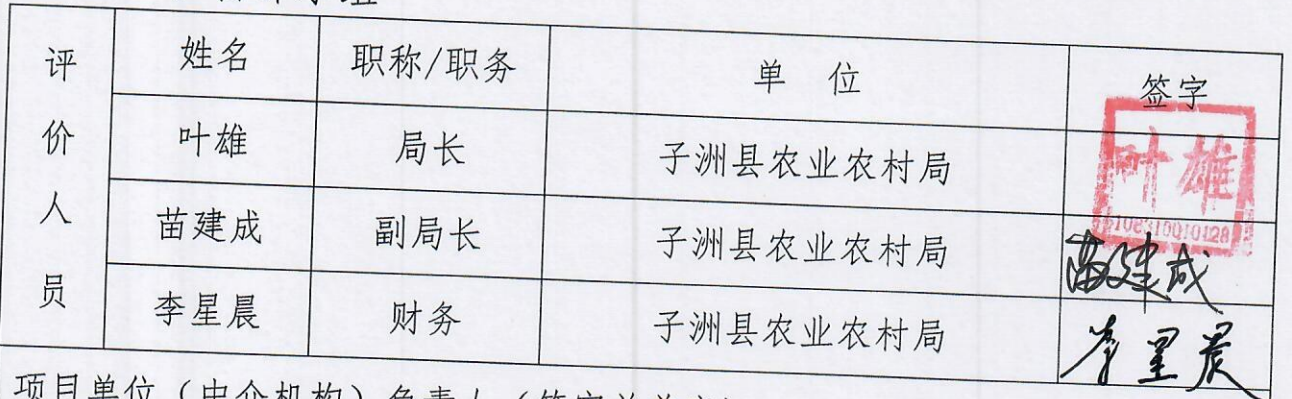 评价人员 姓名 职称/职务 单 位 签字
叶雄 局长 子洲县农业农村局 叶雄
苗建成 副局长 子洲县农业农村局 苗建成
李星晨 财务 子洲县农业农村局 李星晨
项目单位（中介机构）负责人（签字并盖章）